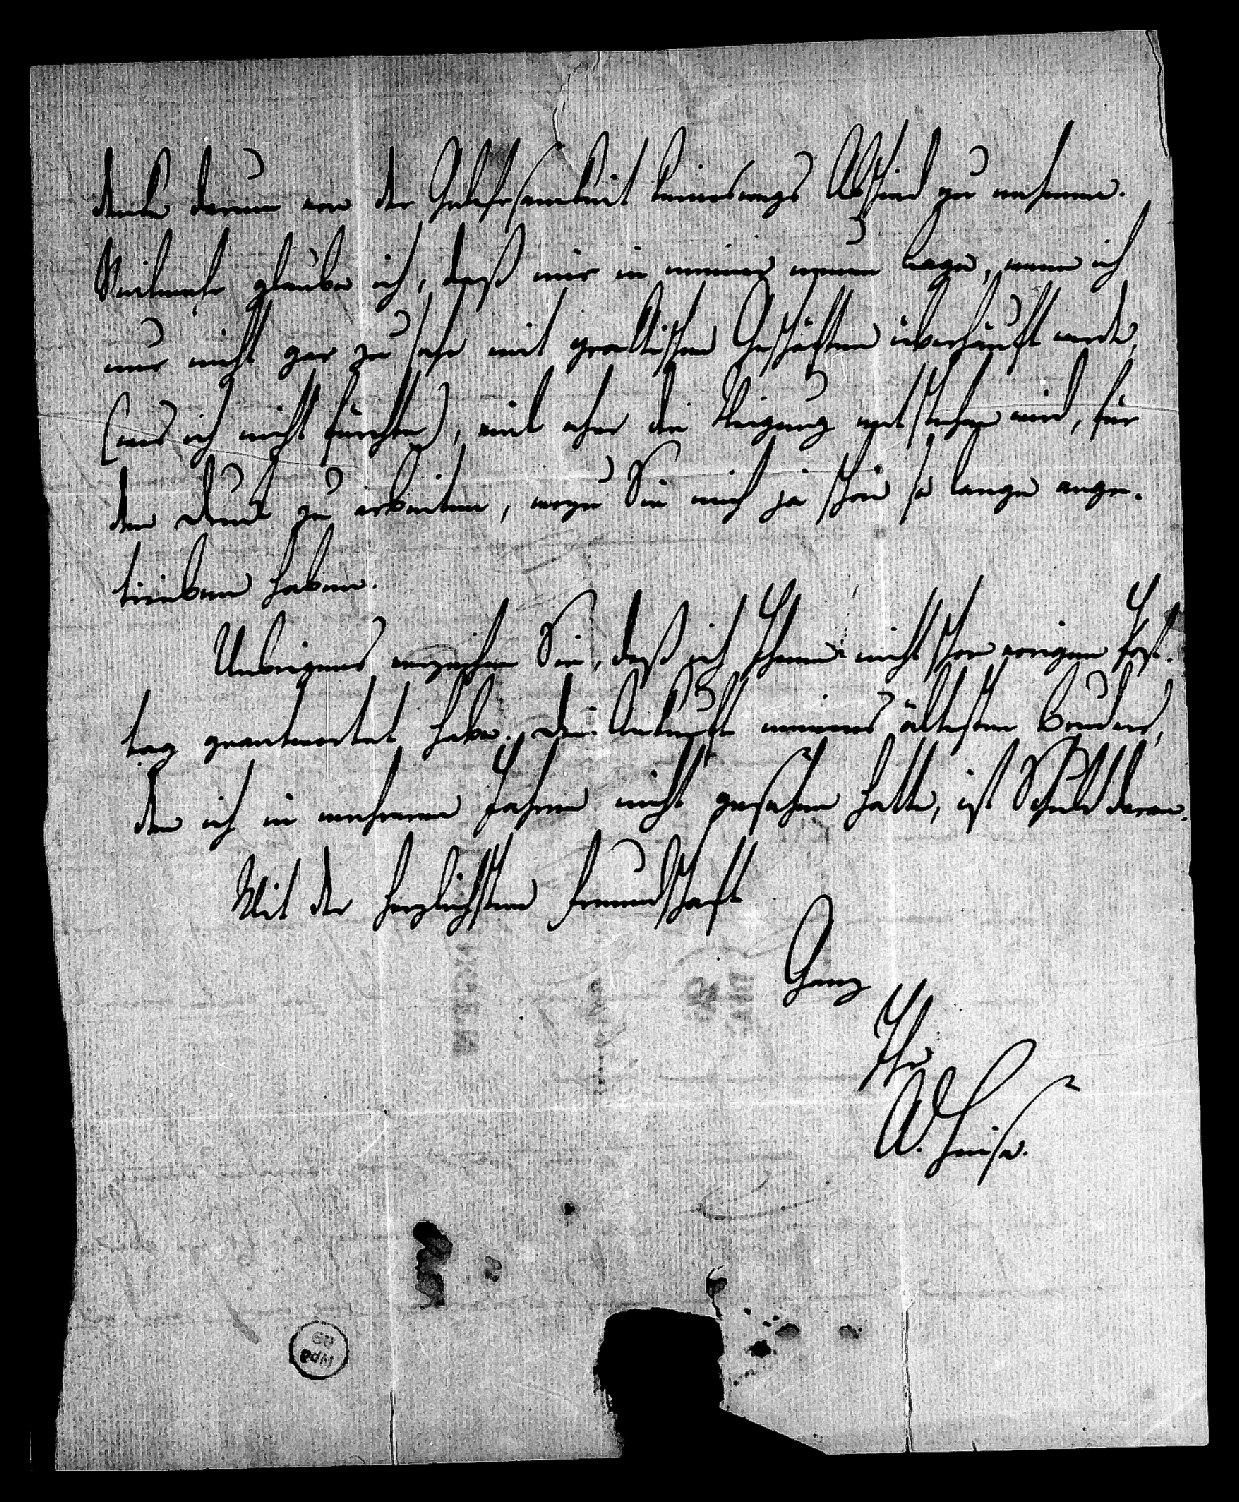 denke darum von der Gelehrsamkeit keineswegs Abschied zu nehmen.
Vielmehr glaube ich, daß mir in meiner neuen Lage, wenn ich
nur nicht gar zu sehr mit practischen Geschäften überhäuft werde,
(was ich nicht fürchte), viel eher die Neigung entstehen wird, für
den Druck zu arbeiten, wozu Sie mich ja schon so lange ange-
trieben haben.
Uebrigens verzeihen Sie, daß ich Ihnen nicht schon vorigen Post-
tag geantwortet habe. Die Ankunft meines ältesten Bruders,
den ich in mehreren Jahren nicht gesehen hatte, ist Schuld daran.
Mit der herzlichsten Freundschaft
Ganz
Ihr
A. Heise.